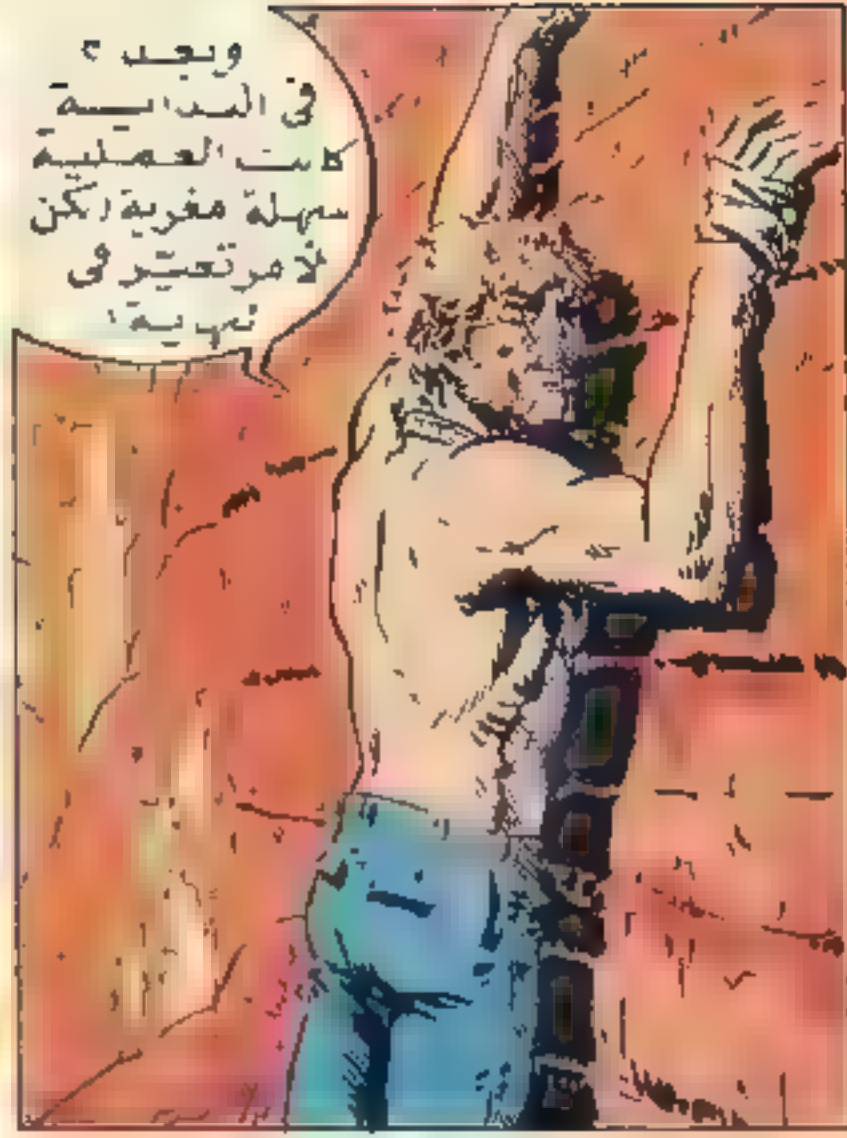 وبعد ؟
في البداية
كانت العملية
سهلة مغرية لكن
الأمر تعسّر في